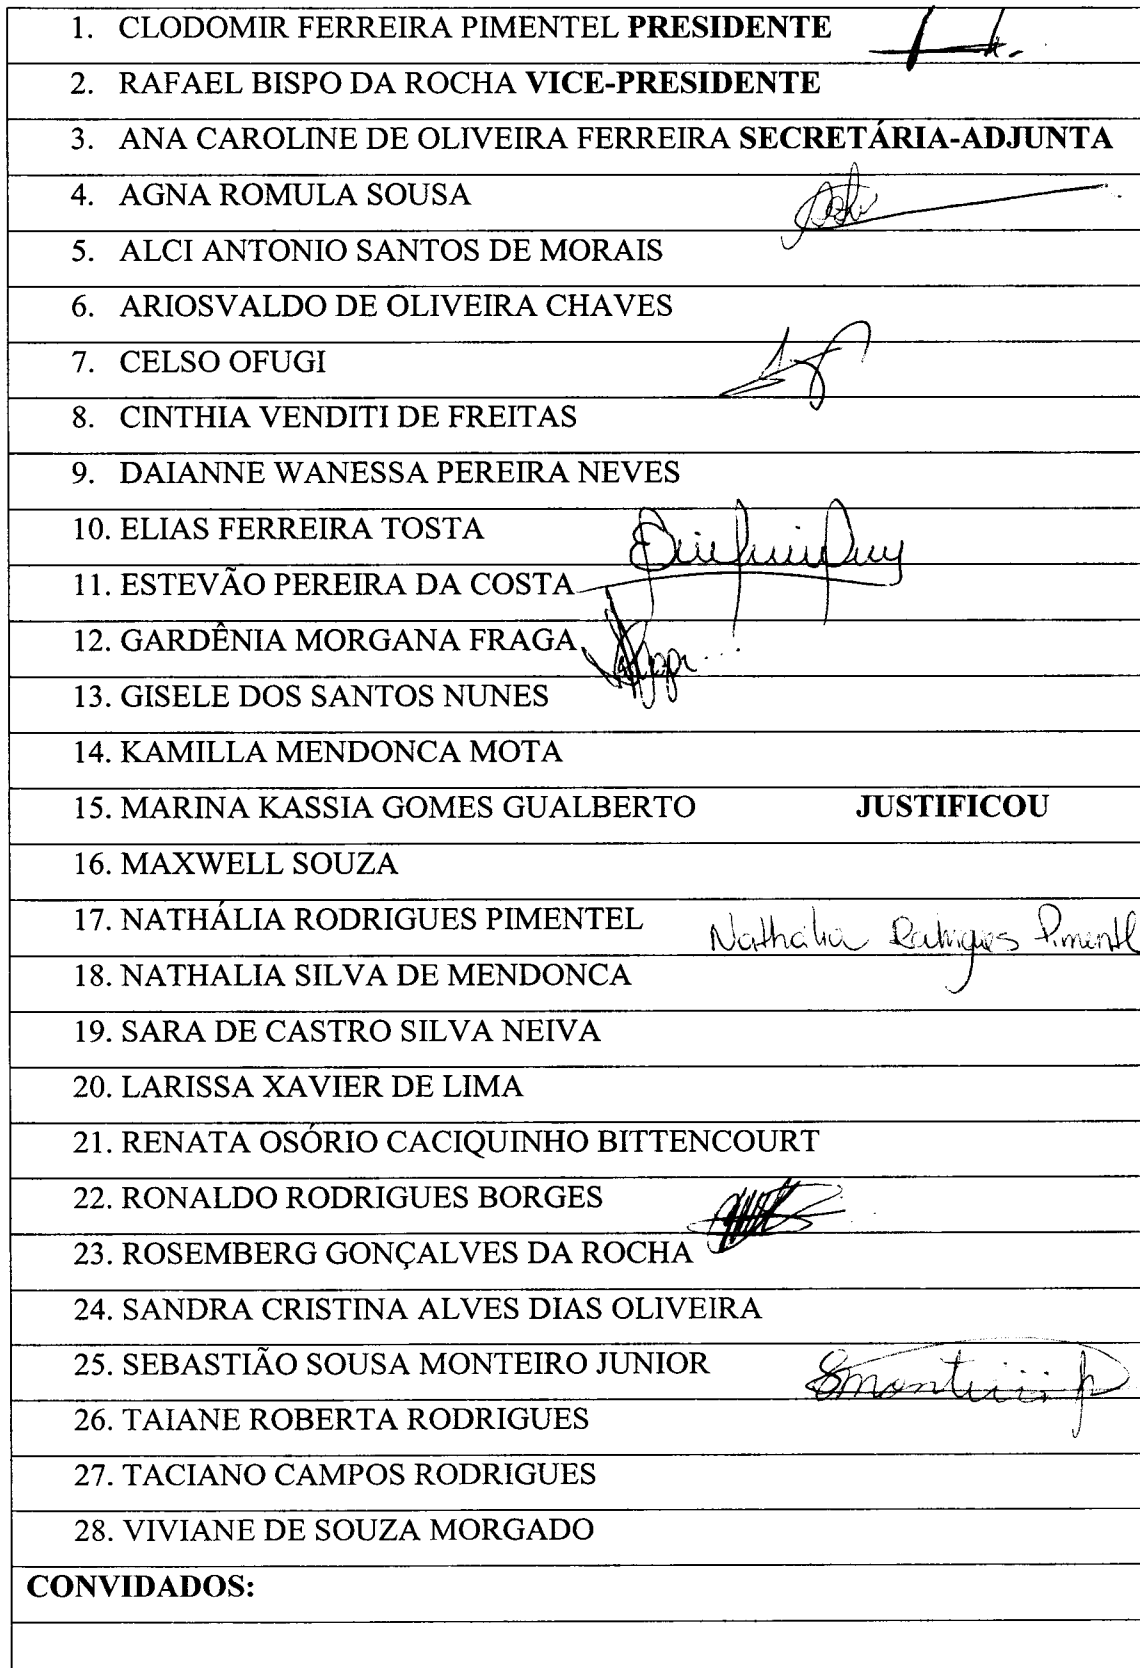 1. CLODOMIR FERREIRA PIMENTEL PRESIDENTE
2. RAFAEL BISPO DA ROCHA VICE-PRESIDENTE
3. ANA CAROLINE DE OLIVEIRA FERREIRA SECRETÁRIA-ADJUNTA
4. AGNA ROMULA SOUSA
5. ALCI ANTONIO SANTOS DE MORAIS
6. ARIOSVALDO DE OLIVEIRA CHAVES
7. CELSO OFUGI
8. CINTHIA VENDITI DE FREITAS
9. DAIANNE WANESSA PEREIRA NEVES
10. ELIAS FERREIRA TOSTA
11. ESTEVÃO PEREIRA DA COSTA
12. GARDÊNIA MORGANA FRAGA
13. GISELE DOS SANTOS NUNES
14. KAMILLA MENDONCA MOTA
15. MARINA KASSIA GOMES GUALBERTO JUSTIFICOU
16. MAXWELL SOUZA
17. NATHÁLIA RODRIGUES PIMENTEL Nathalia Rodrigues Pimentel
18. NATHALIA SILVA DE MENDONCA
19. SARA DE CASTRO SILVA NEIVA
20. LARISSA XAVIER DE LIMA
21. RENATA OSÓRIO CACIQUINHO BITTENCOURT
22. RONALDO RODRIGUES BORGES
23. ROSEMBERG GONÇALVES DA ROCHA
24. SANDRA CRISTINA ALVES DIAS OLIVEIRA
25. SEBASTIÃO SOUSA MONTEIRO JUNIOR
26. TAIANE ROBERTA RODRIGUES
27. TACIANO CAMPOS RODRIGUES
28. VIVIANE DE SOUZA MORGADO
CONVIDADOS: